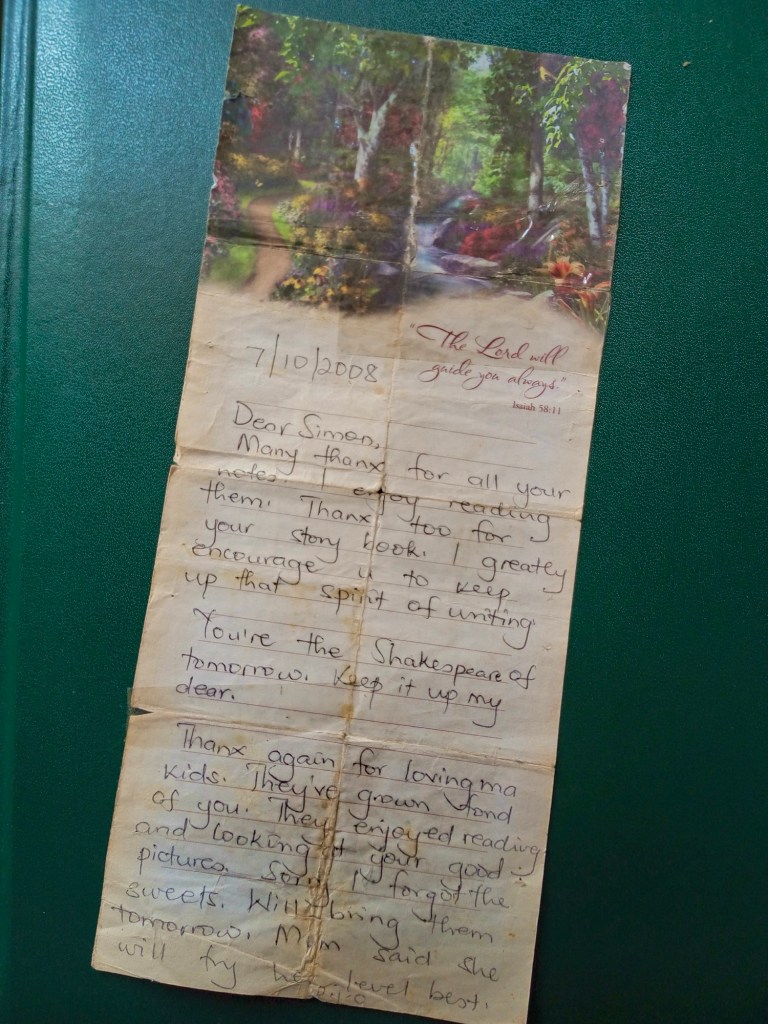 "The Lord will
guide you always."
Isaiah 58:11
7/10/2008
Dear Simon,
Many thanx for all your
notes. I enjoy reading
them. Thanx too for
your story book. I greatly
encourage u to keep
up that spirit of writing
You're the Shakespeare of
tomorrow. Keep it up my
dear.
Thanx again for loving ma
kids. They've grown fond
of you. They enjoyed reading
and looking at your good
pictures. Sorry I forgot the
sweets. Will bring them
tomorrow. Mum said she
will try her level best.